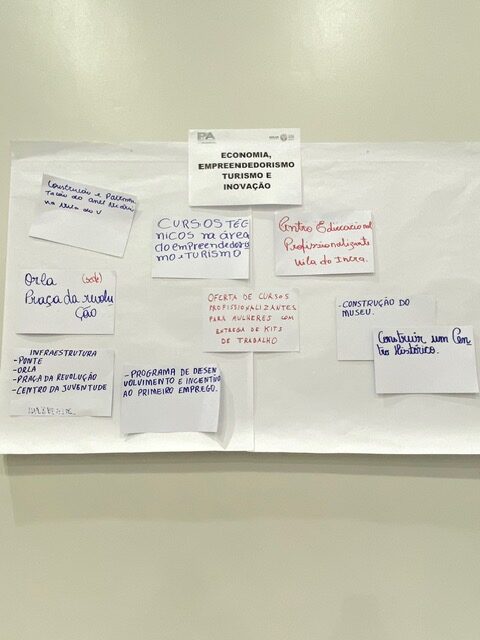 PA
ECONOMIA,
EMPREENDEDORISMO
TURISMO E
INOVAÇÃO
Construção e
na Vila do V
CURSOS TÉC
NICOS na área
do empreendedoris
mo e TURISMO
Centro Educacional
Profissionalizante
Vila do Incra.
Orla (sede)
Praça da revolu
ção
OFERTA DE CURSOS
PROFISSIONALIZANTES
PARA MULHERES COM
ENTREGA DE KITS
DE TRABALHO
-CONSTRUÇÃO DO
MUSEU.
Construir um Cen
tro Histórico.
INFRAESTRUTURA
-PONTE
-ORLA
-PRAÇA DA REVOLUÇÃO
-CENTRO DA JUVENTUDE
-PROGRAMA DE DESEN
VOLVIMENTO E INCENTIVO
AO PRIMEIRO EMPREGO.